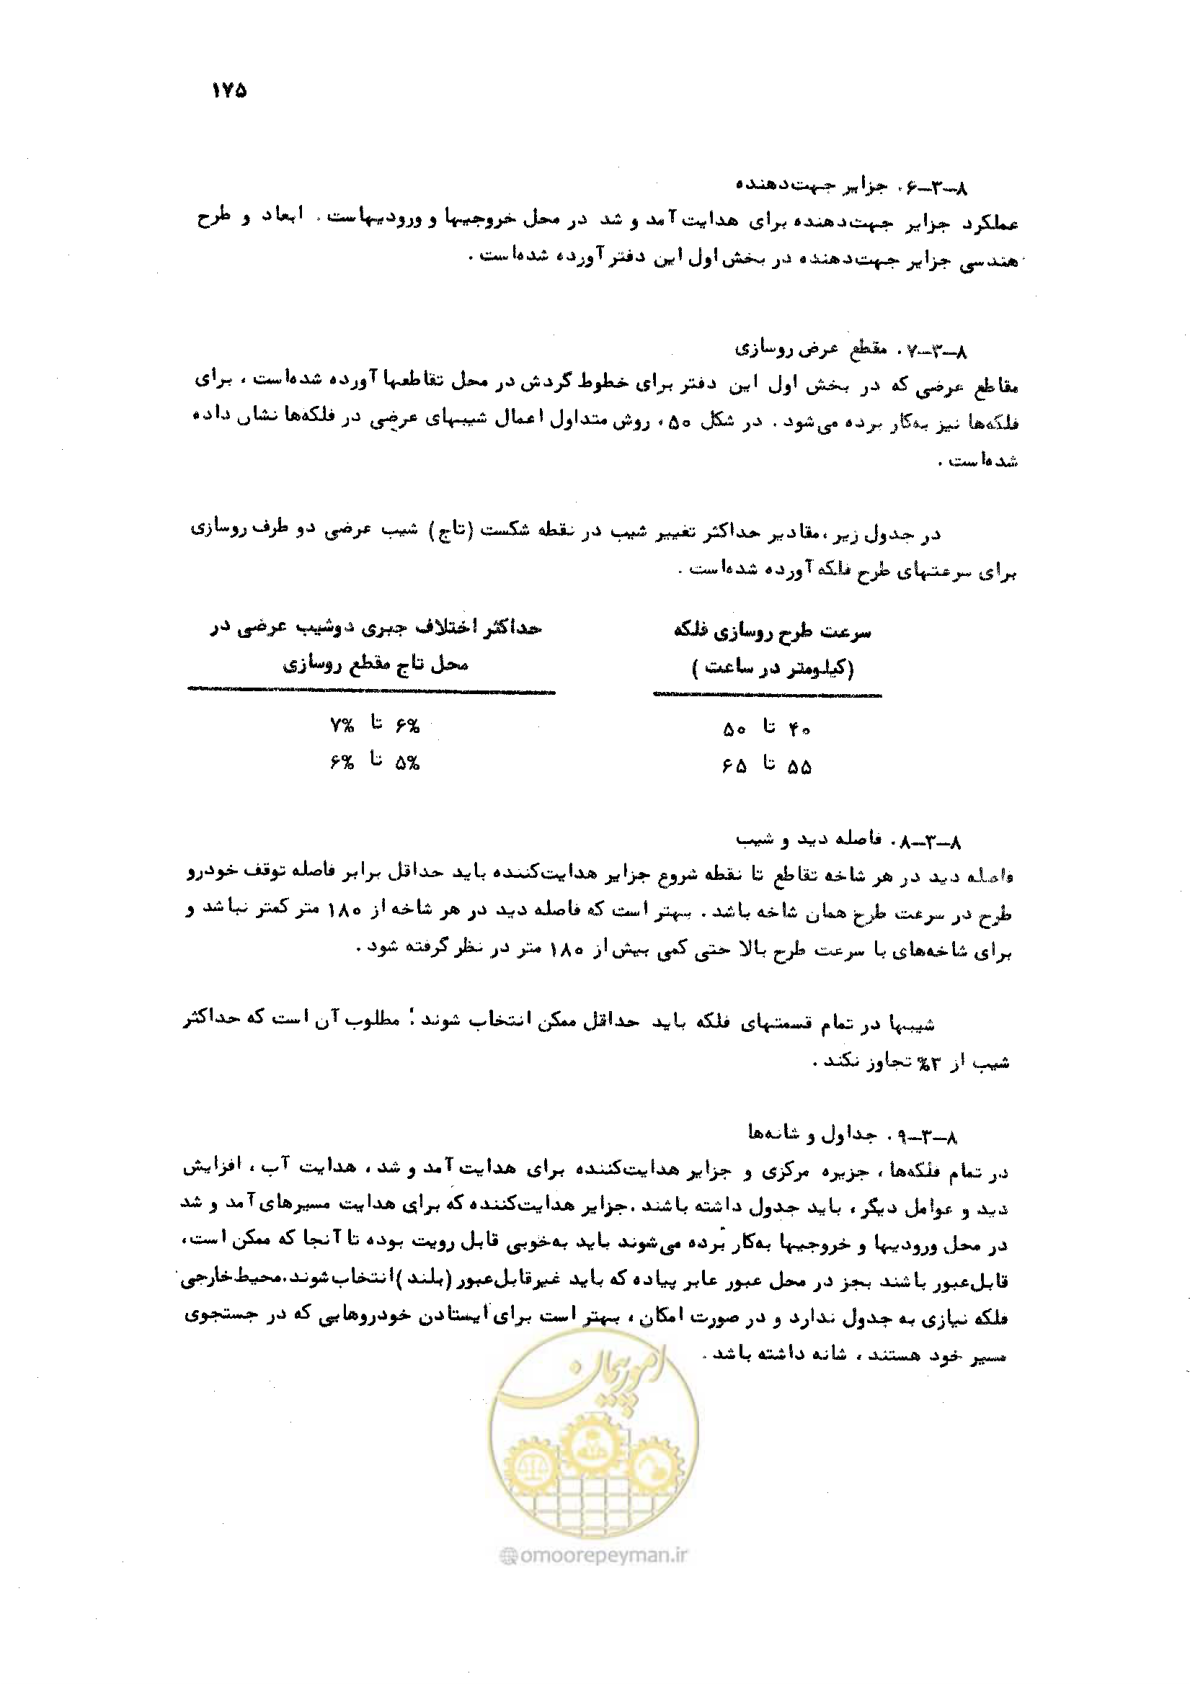 ۱۷۵
۸–۳–۶. جزایر جهت‌دهنده
عملکرد جزایر جهت‌دهنده برای هدایت آمد و شد در محل خروجیها و ورودیهاست. ابعاد و طرح
هندسی جزایر جهت‌دهنده در بخش اول این دفتر آورده شده‌است.
۸–۳–۷. مقطع عرض روسازی
مقاطع عرضی که در بخش اول این دفتر برای خطوط گردش در محل تقاطعها آورده شده‌است، برای
فلکه‌ها نیز به‌کار برده می‌شود. در شکل ۵۰، روش متداول اعمال شیبهای عرضی در فلکه‌ها نشان داده
شده‌است.
در جدول زیر، مقادیر حداکثر تغییر شیب در نقطه شکست (تاج) شیب عرضی دو طرف روسازی
برای سرعتهای طرح فلکه آورده شده‌است.
سرعت طرح روسازی فلکه
(کیلومتر در ساعت)
حداکثر اختلاف جبری دوشیب عرضی در
محل تاج مقطع روسازی
۴۰ تا ۵۰
۶% تا ۷%
۵۵ تا ۶۵
۵% تا ۶%
۸–۳–۸. فاصله دید و شیب
فاصله دید در هر شاخه تقاطع تا نقطه شروع جزایر هدایت‌کننده باید حداقل برابر فاصله توقف خودرو
طرح در سرعت طرح همان شاخه باشد. بهتر است که فاصله دید در هر شاخه از ۱۸۰ متر کمتر نباشد و
برای شاخه‌های با سرعت طرح بالا حتی کمی بیش از ۱۸۰ متر در نظر گرفته شود.
شیبها در تمام قسمتهای فلکه باید حداقل ممکن انتخاب شوند؛ مطلوب آن است که حداکثر
شیب از ۳% تجاوز نکند.
۸–۳–۹. جداول و شانه‌ها
در تمام فلکه‌ها، جزیره مرکزی و جزایر هدایت‌کننده برای هدایت آمد و شد، هدایت آب، افزایش
دید و عوامل دیگر، باید جدول داشته باشند. جزایر هدایت‌کننده که برای هدایت مسیرهای آمد و شد
در محل ورودیها و خروجیها به‌کار برده می‌شوند باید به‌خوبی قابل رویت بوده تا آنجا که ممکن است،
قابل‌عبور باشند بجز در محل عبور عابر پیاده که باید غیرقابل‌عبور (بلند) انتخاب شوند. محیط خارجی
فلکه نیازی به جدول ندارد و در صورت امکان، بهتر است برای ایستادن خودروهایی که در جستجوی
مسیر خود هستند، شانه داشته باشد.
امور پیمان
@omoorepeyman.ir